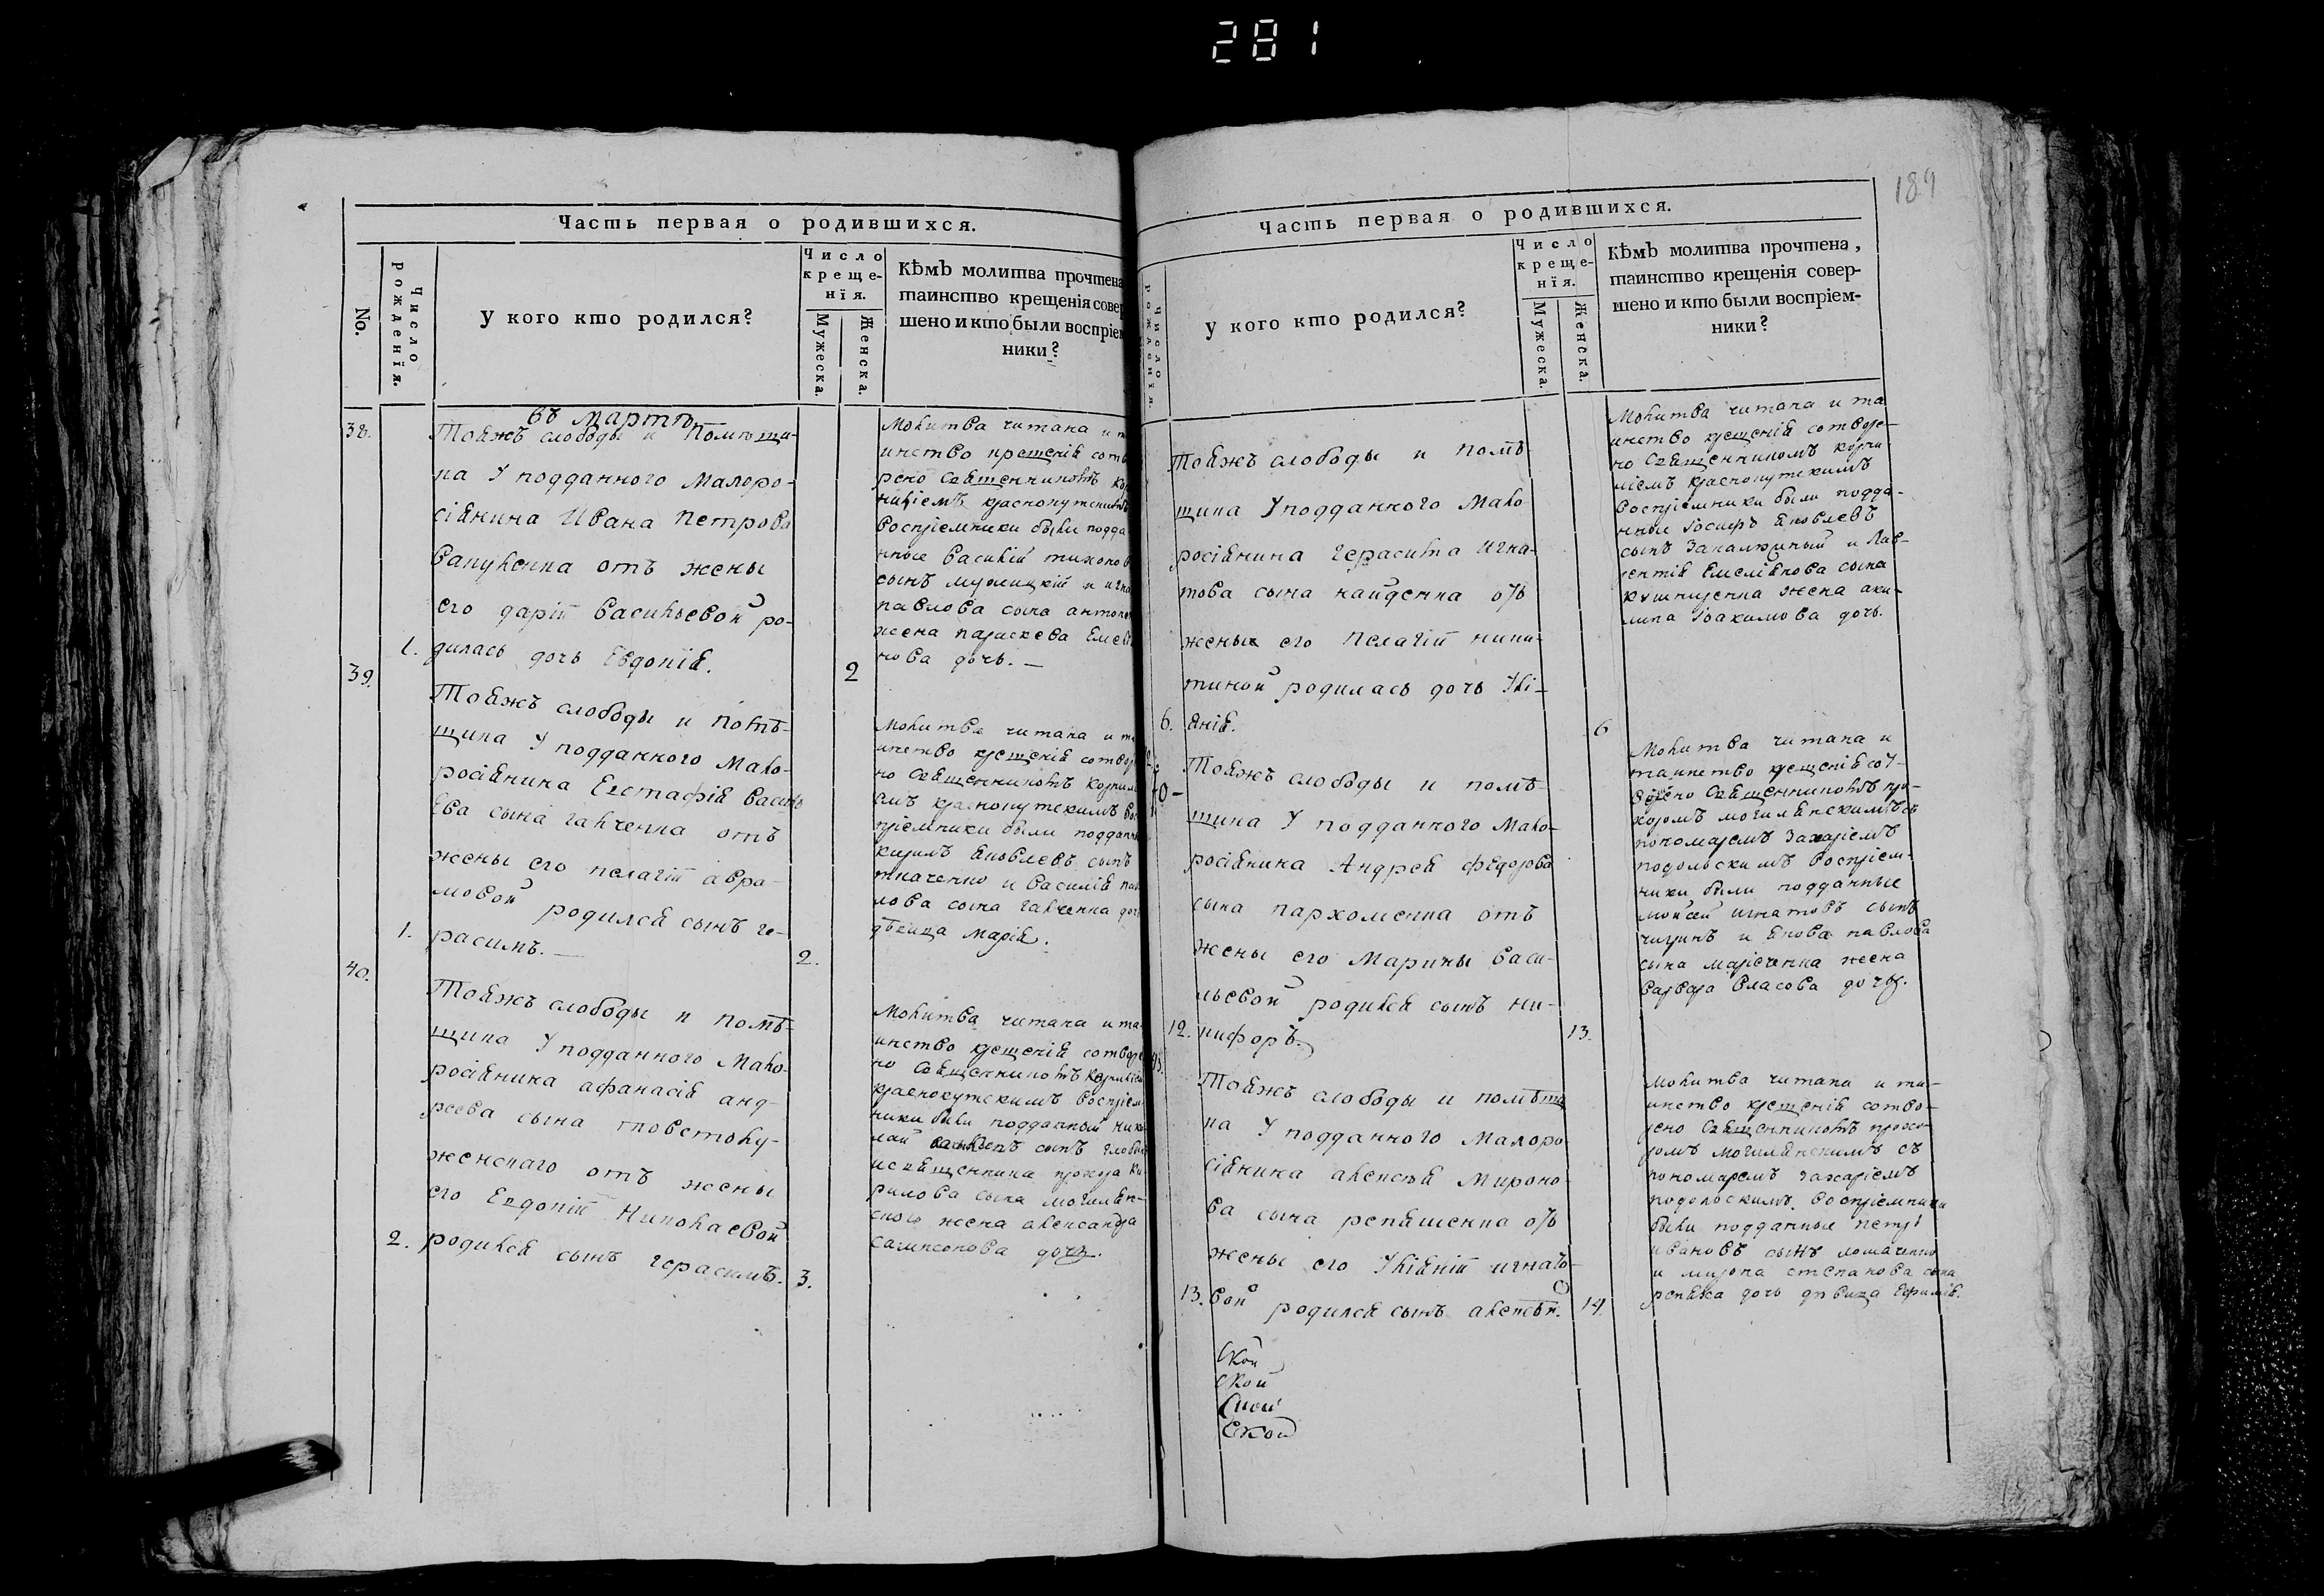 281
189
Часть первая о родившихся.
No.
Число рожденїя.
У кого кто родился?
Число креще-
нїя.
Мужеска.
Женска.
Кѣмъ молитва прочтена
таинство крещенія совер
шено и кто были воспріем
ники?
въ мартѣ
38.
Тояжъ слободы и помѣщи-
ка у подданного малоро-
сіянина Ивана Петрова
его даріи васильевой ро-
1.
дилась дочь Евдокія.
2
Молитва читана и т
инство крещенія сотв
рено священникомъ ко
ниліемъ краснокутскимъ
воспріемники были подда
нные василій тихонов
павлова сына антон
жена параскева Емел
нова дочь. —
39.
Тояжъ слободы и помѣ-
щика у подданного мало-
росіянина Евстафія Василь
ева сына галченка отъ
жены его пелагіи авра-
мовой родился сынъ ге-
1.
расимъ. —
2.
Молитва читана и т
инство крещенія сотвор
но священникомъ корнил
емъ краснокутскимъ вос
пріемники были поддан
ткаченко и василія пав
лова сына галченка доч
дѣвица марія.
40.
Тояжъ слободы и помѣ-
щика у подданного мало-
росіянина афанасія анд-
реева сына
отъ жены
его Евдокіи Николаевой
2.
родился сынъ герасимъ.
3.
Молитва читана и та-
инство крещенія сотворе
но священникомъ корниліем
краснокутскимъ воспріем
ники были подданный нико
лай сынъ
и священника прохора ки
рилова сына могилян-
ского жена александра
сампсонова дочь.
Часть первая о родившихся.
Число рожденїя.
У кого кто родился?
Число креще-
нїя.
Мужеска.
Женска.
Кѣмъ молитва прочтена,
таинство крещенія совер-
шено и кто были воспріем-
ники?
Тояжъ слободы и помѣ
щика у подданного мало
росіянина герасима игна-
това сына найденка отъ
жены его пелагіи ники-
тиной родилась дочь Улі-
6.
янія.
6
Молитва читана и та
инство крещенія сотворе-
но священникомъ корни-
ліемъ краснокутскимъ
воспріемники были подда-
нные Іосифъ яковлевъ
сынъ и Лав-
рентія Емеліянова сына
кушниренка жена аки-
лина Іоакимова дочь.
Тояжъ слободы и помѣ-
щика у подданного мало-
росіянина Андрея федорова
сына пархоменка отъ
жены его марины васи-
льевой родился сынъ ни-
12.
кифоръ.
13.
Молитва читана и
таинство крещенія сот-
ворено священникомъ про-
хоромъ могилянскимъ съ
пономаремъ Захаріемъ
подольскимъ воспріем-
ники были подданные
мойсей игнатовъ сынъ
и якова павлова
сына жена
варвара власова дочь.
Тояжъ слободы и помѣщи
ка у подданного малоро-
сіянина алексѣя мироно-
ва сына репяшенка отъ
жены его Уліяніи игнато-
13.
вой родился сынъ алексѣй.
14.
Молитва читана и та-
инство крещенія сотво-
рено священникомъ прохо-
ромъ могилянскимъ съ
пономаремъ захаріемъ
подольскимъ. воспріемники
были подданные петръ
ивановъ сынъ ломаченко
и мирона степанова сына
репяха дочь дѣвица Ефимія.
Ской
Ской
Ской
Ской